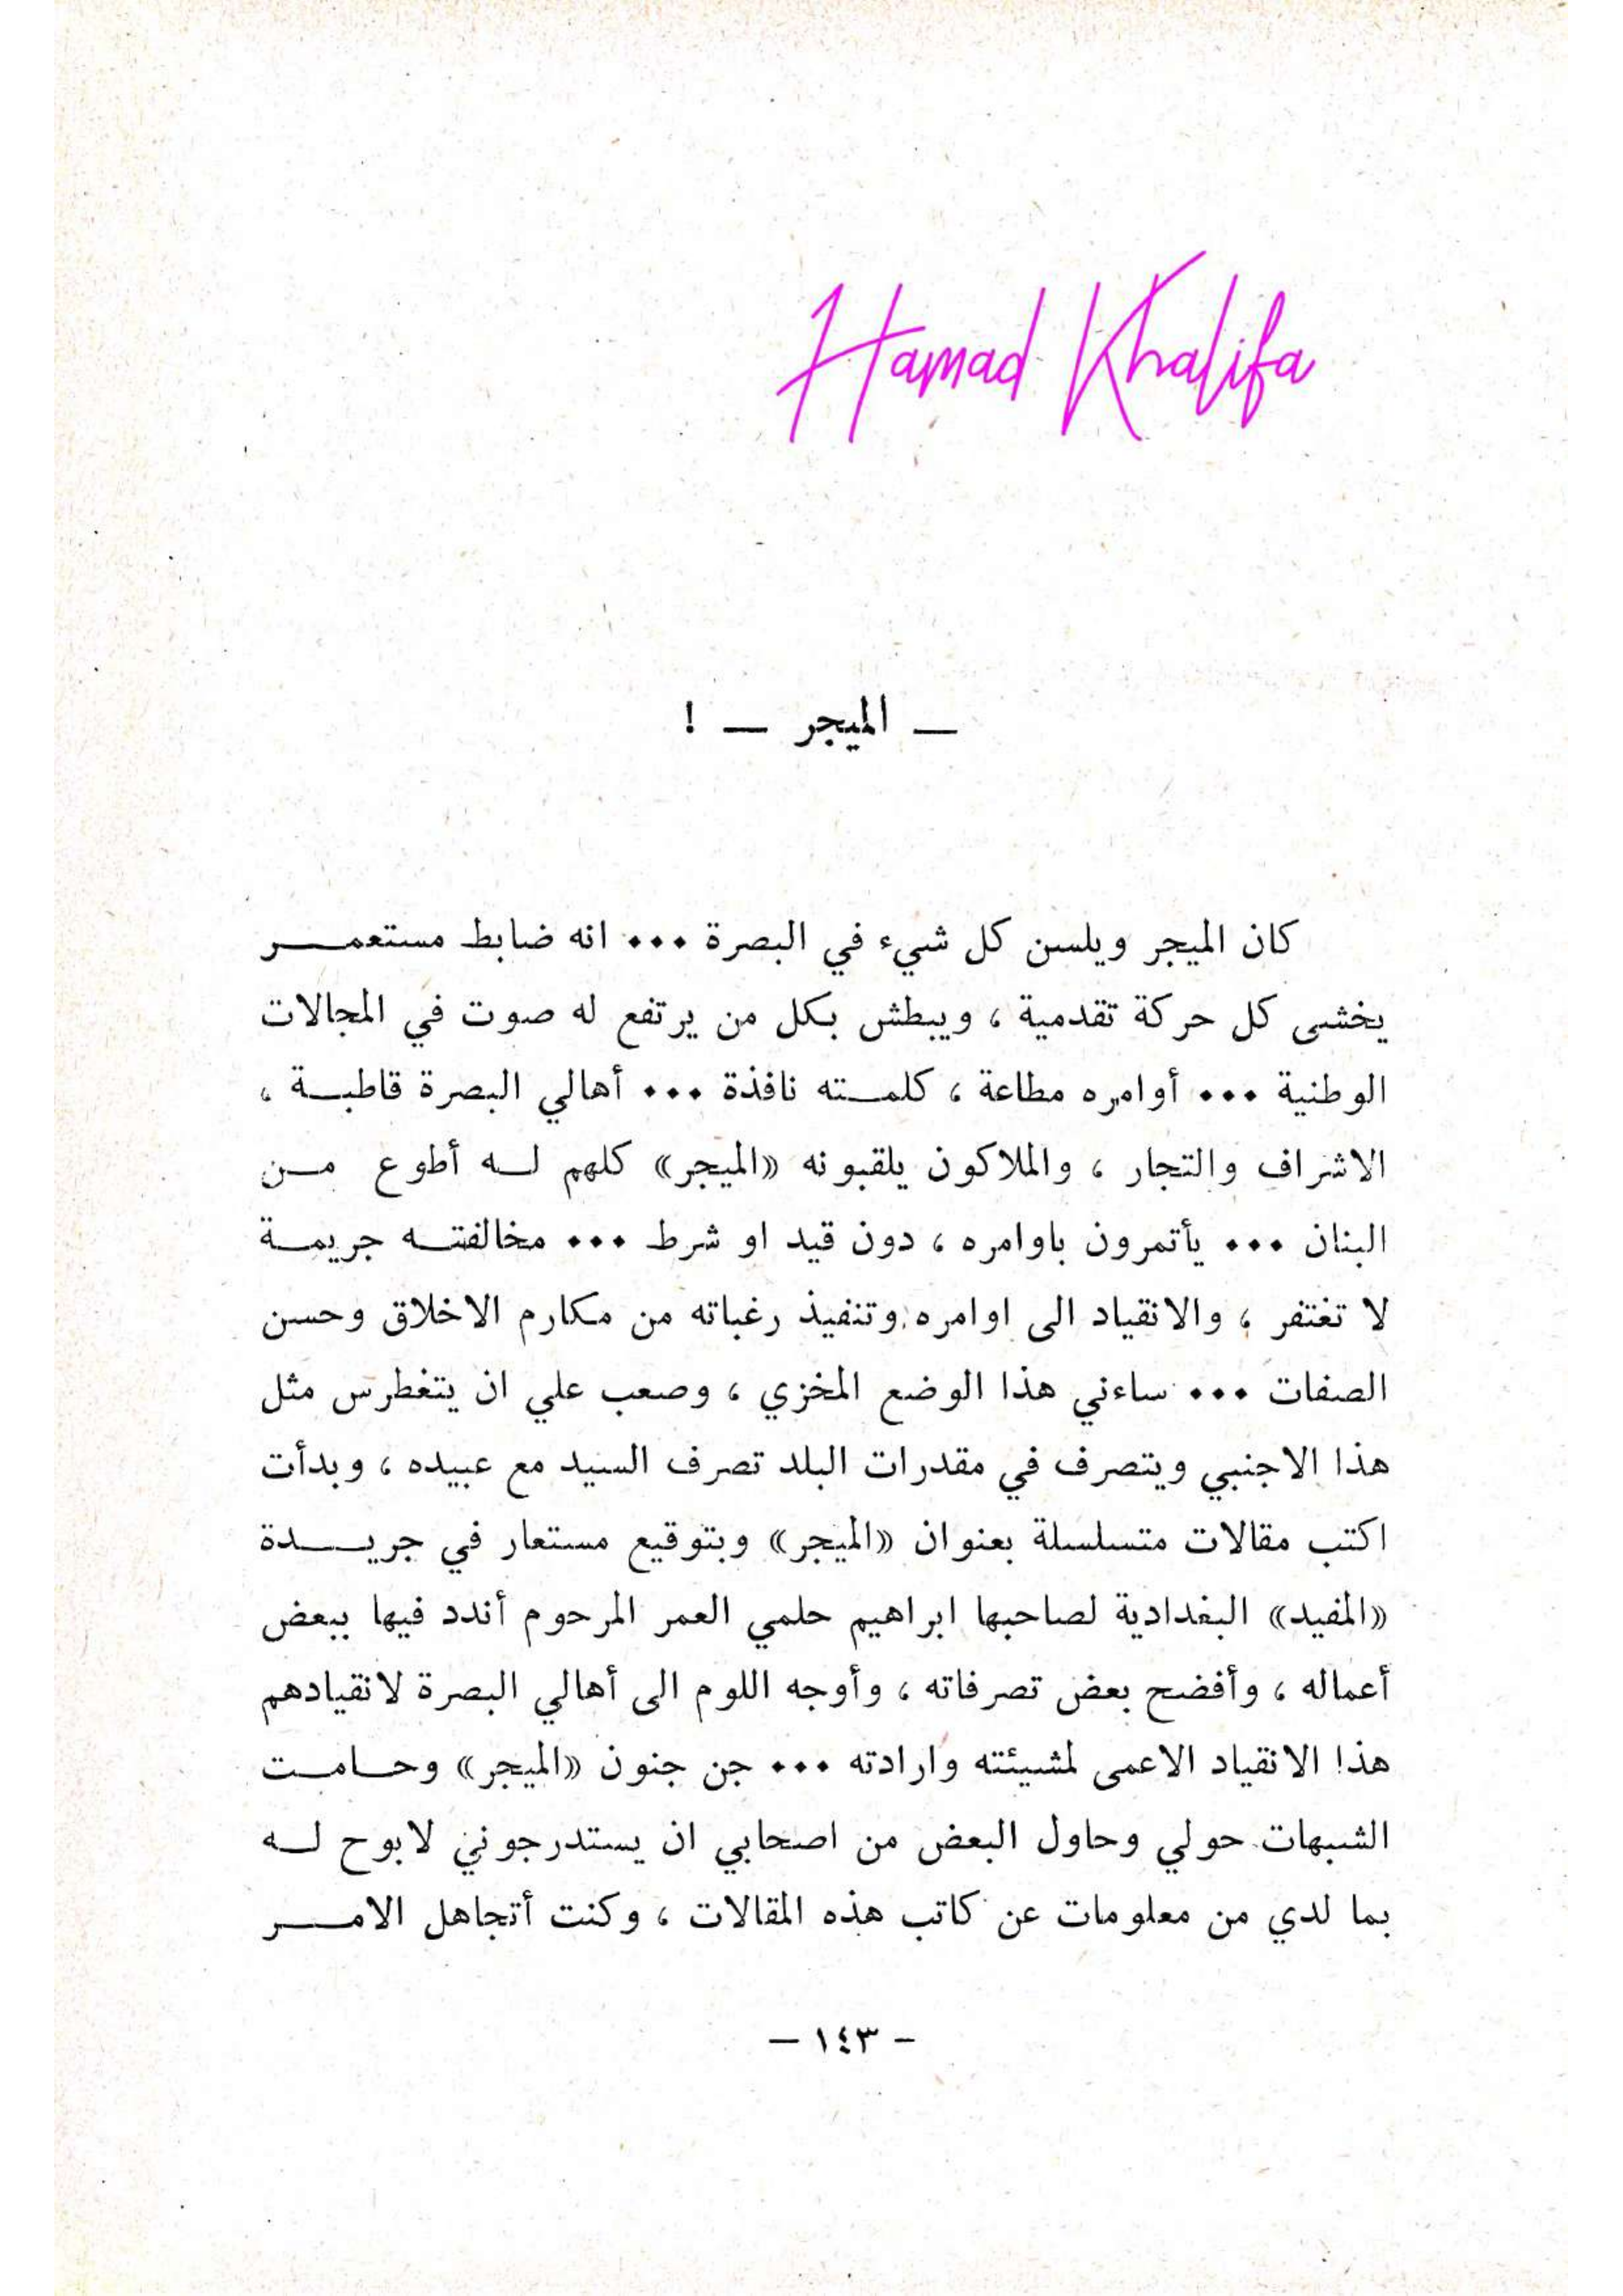 Hamad Khalifa
— الميجر — !
كان الميجر ويلسن كل شيء في البصرة ٠٠٠ انه ضابط مستعمـــر
يخشى كل حركة تقدمية ، ويبطش بكل من يرتفع له صوت في المجالات
الوطنية ٠٠٠ أوامره مطاعة ، كلمـــته نافذة ٠٠٠ أهالي البصرة قاطبـــة ،
الاشراف والتجار ، والملاكون يلقبونه «الميجر» كلهم لـــه أطوع مـــن
البنان ٠٠٠ يأتمرون باوامره ، دون قيد او شرط ٠٠٠ مخالفتـــه جريمـــة
لا تغتفر ، والانقياد الى اوامره وتنفيذ رغباته من مكارم الاخلاق وحسن
الصفات ٠٠٠ ساءني هذا الوضع المخزي ، وصعب علي ان يتغطرس مثل
هذا الاجنبي ويتصرف في مقدرات البلد تصرف السيد مع عبيده ، وبدأت
اكتب مقالات متسلسلة بعنوان «الميجر» وبتوقيع مستعار في جريـــدة
«المفيد» البغدادية لصاحبها ابراهيم حلمي العمر المرحوم أندد فيها ببعض
أعماله ، وأفضح بعض تصرفاته ، وأوجه اللوم الى أهالي البصرة لانقيادهم
هذا الانقياد الاعمى لمشيئته وارادته ٠٠٠ جن جنون «الميجر» وحـــامـــت
الشبهات حولي وحاول البعض من اصحابي ان يستدرجوني لابوح لـــه
بما لدي من معلومات عن كاتب هذه المقالات ، وكنت أتجاهل الامـــر
- ١٤٣ —